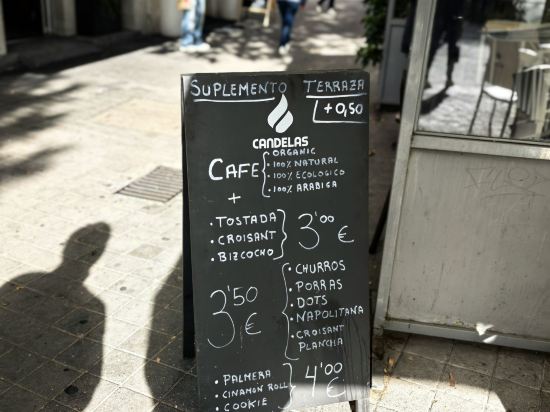 SUPLEMENTO TERRAZA
+0,50
CANDELAS
CAFE
ORGANIC
100% NATURAL
100% ECOLOGICO
100% ARABIGA
+
• TOSTADA
• CROISANT
• BIZCOCHO
3'00 €
3'50 €
• CHURROS
• PORRAS
• DOTS
• NAPOLITANA
• CROISANT
PLANCHA
• PALMERA
• CINAMON ROLL
• COOKIE
4'00 €